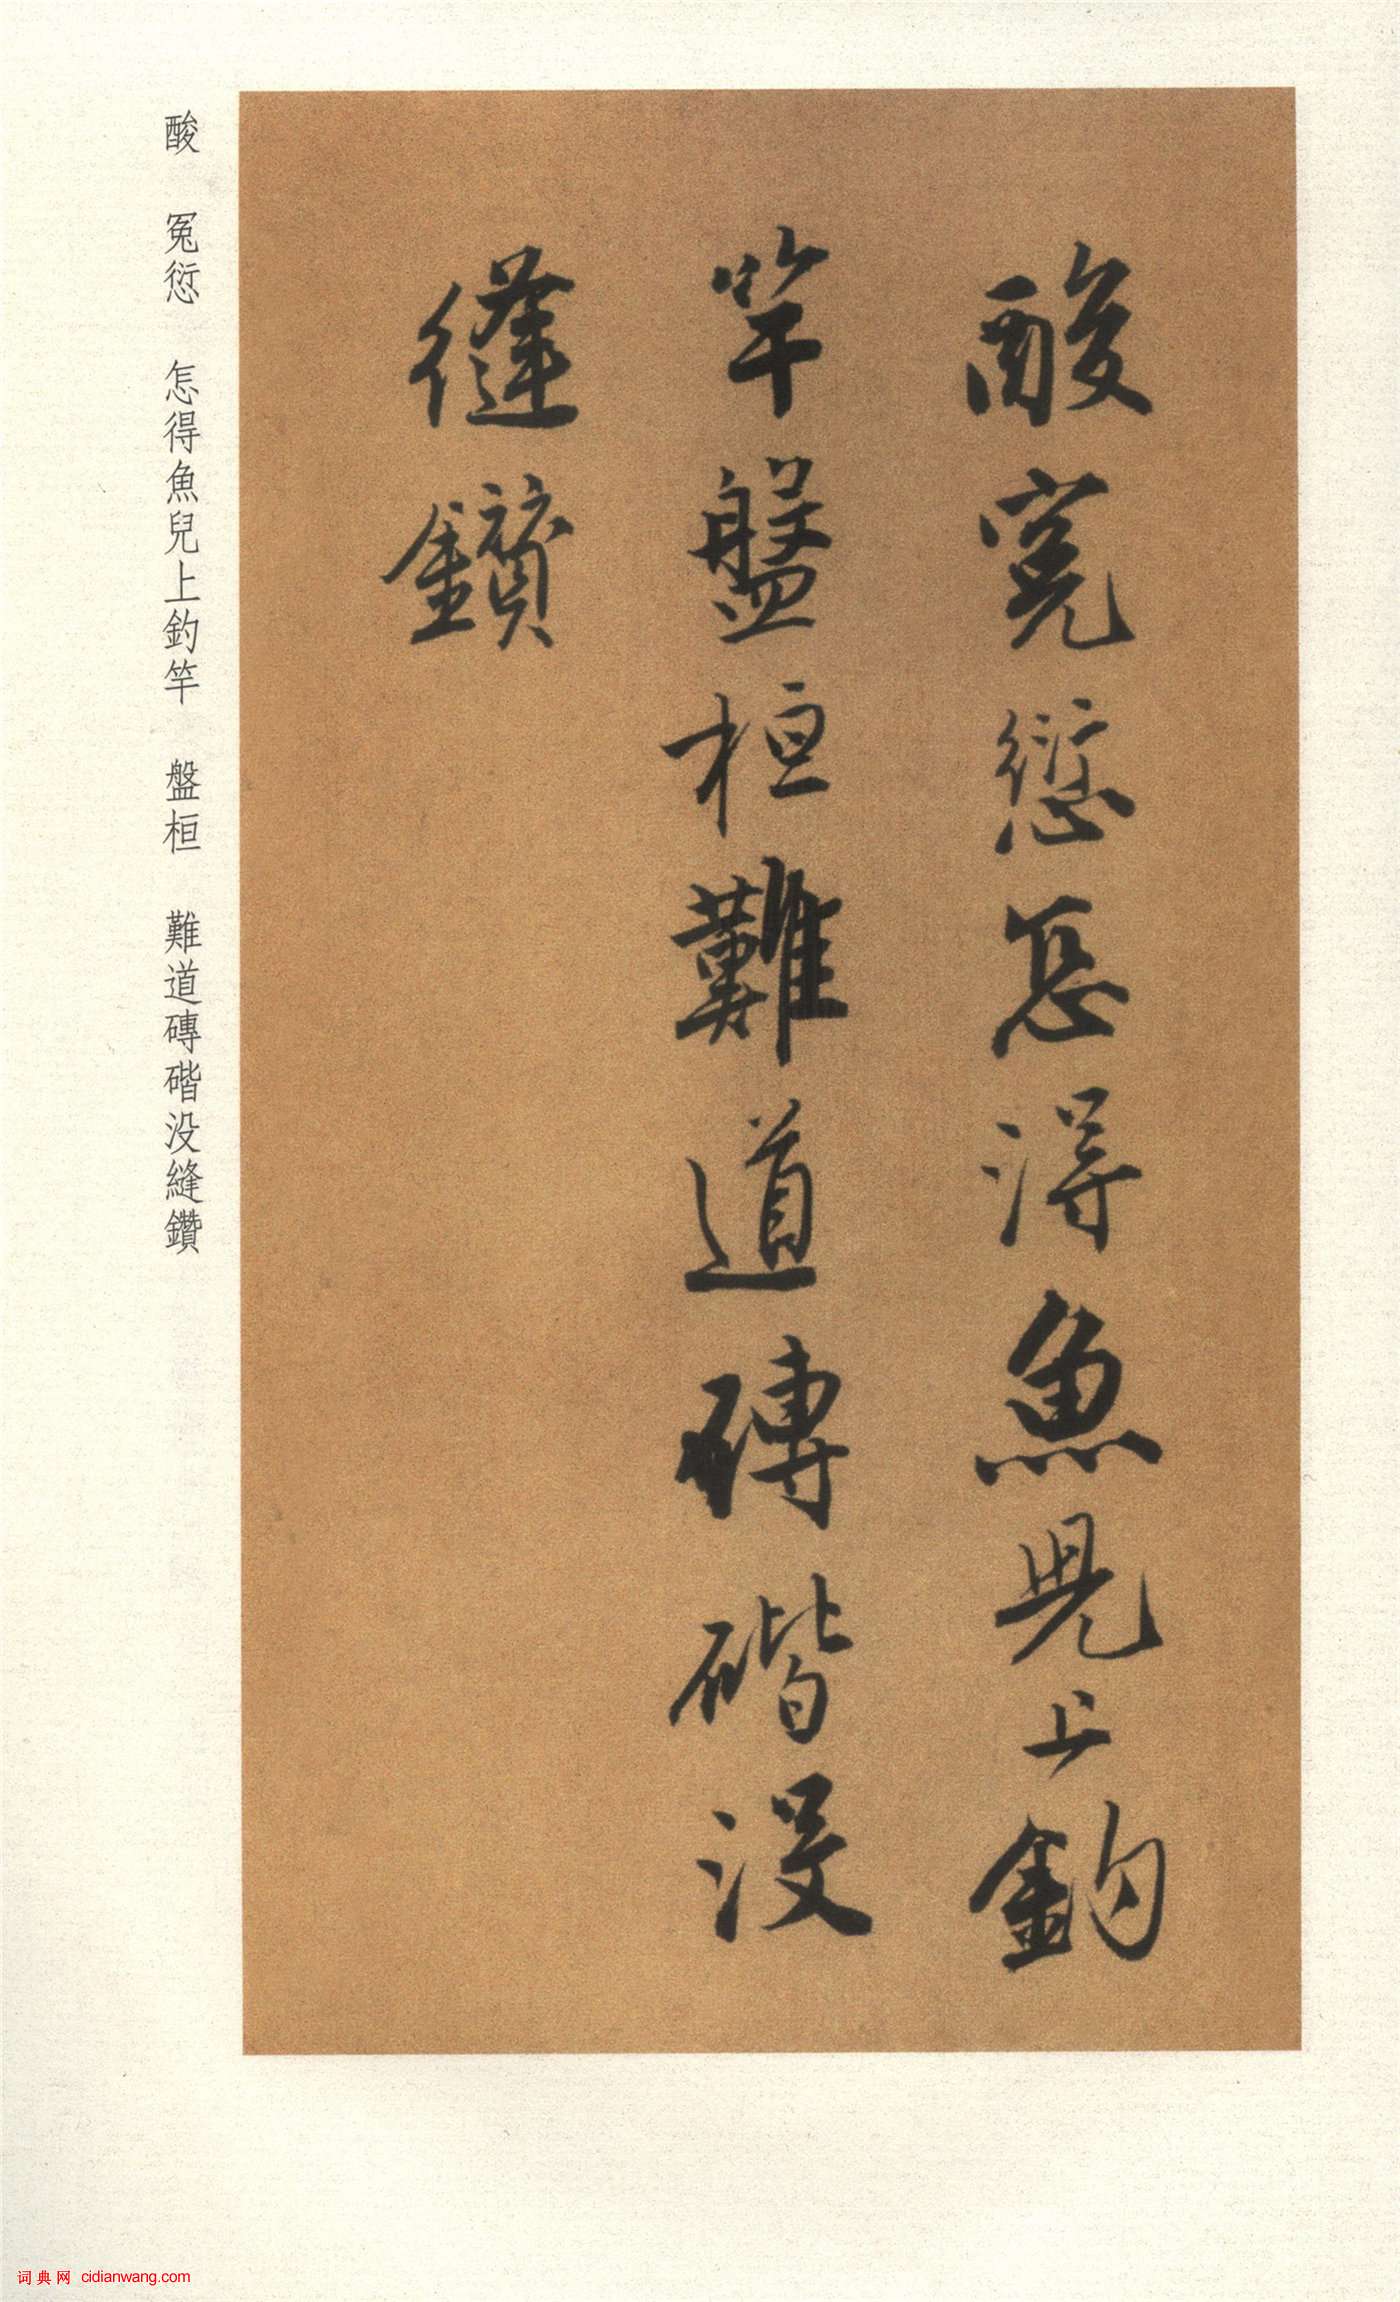 酸冤愆怎得魚兒上鈎
竿盤桓難道磚碏没
縫鑽
酸 冤愆 怎得魚兒上釣竿 盤桓 難道磚碏没縫鑽
词典网 cidianwang.com